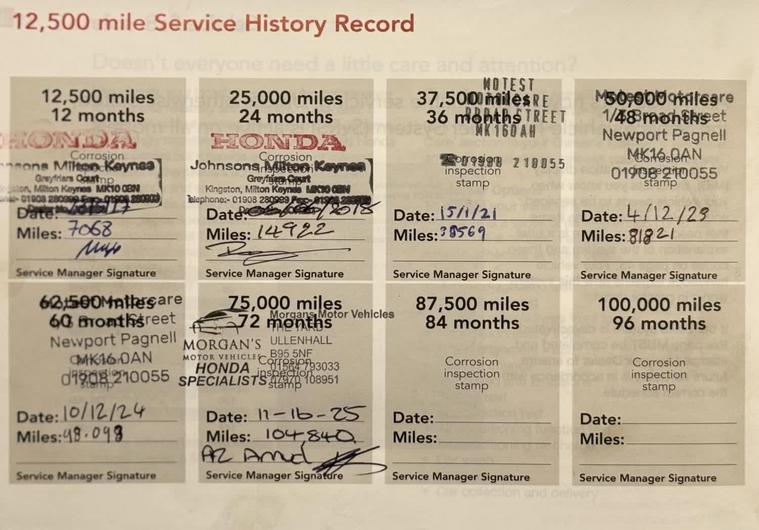 12,500 mile Service History Record
Doesn't everyone need a little care and attention?
12,500 miles
12 months
HONDA
Corrosion
Johnsons Milton Keynes
Greyfriars Court
Kingston, Milton Keynes MK10 0BN
01908 280999
Date:
Miles: 7068
Service Manager Signature
25,000 miles
24 months
HONDA
Corrosion
Johnsons Milton Keynes
Greyfriars Court
Kingston, Milton Keynes MK10 0BN
Telephone:- 01908 280999 Fax:- 01908 280903
stamp
Date: 2018
Miles: 14922
Service Manager Signature
37,500 miles
36 months
MOTEST
MOTORCARE
BROAD STREET
MK160AH
01908 210055
Corrosion
inspection
stamp
Date: 15/1/21
Miles: 38569
Service Manager Signature
50,000 miles
48 months
Motest Motorcare
Broad Street
Newport Pagnell
MK16 0AN
01908 210055
Corrosion
inspection
stamp
Date: 4/12/23
Miles: 81821
Service Manager Signature
62,500 miles
60 months
Motest Motorcare
Broad Street
Newport Pagnell
MK16 0AN
01908 210055
Corrosion
inspection
stamp
Date: 10/12/24
Miles: 98.098
Service Manager Signature
75,000 miles
72 months
Morgans Motor Vehicles
THE YARD
ULLENHALL
B95 5NF
01564 793033
07970 108951
MORGAN'S
MOTOR VEHICLES
HONDA
SPECIALISTS
Corrosion
inspection
stamp
Date: 11-10-25
Miles: 104840
Service Manager Signature
87,500 miles
84 months
Corrosion
inspection
stamp
Date:
Miles:
Service Manager Signature
100,000 miles
96 months
Corrosion
inspection
stamp
Date:
Miles:
Service Manager Signature